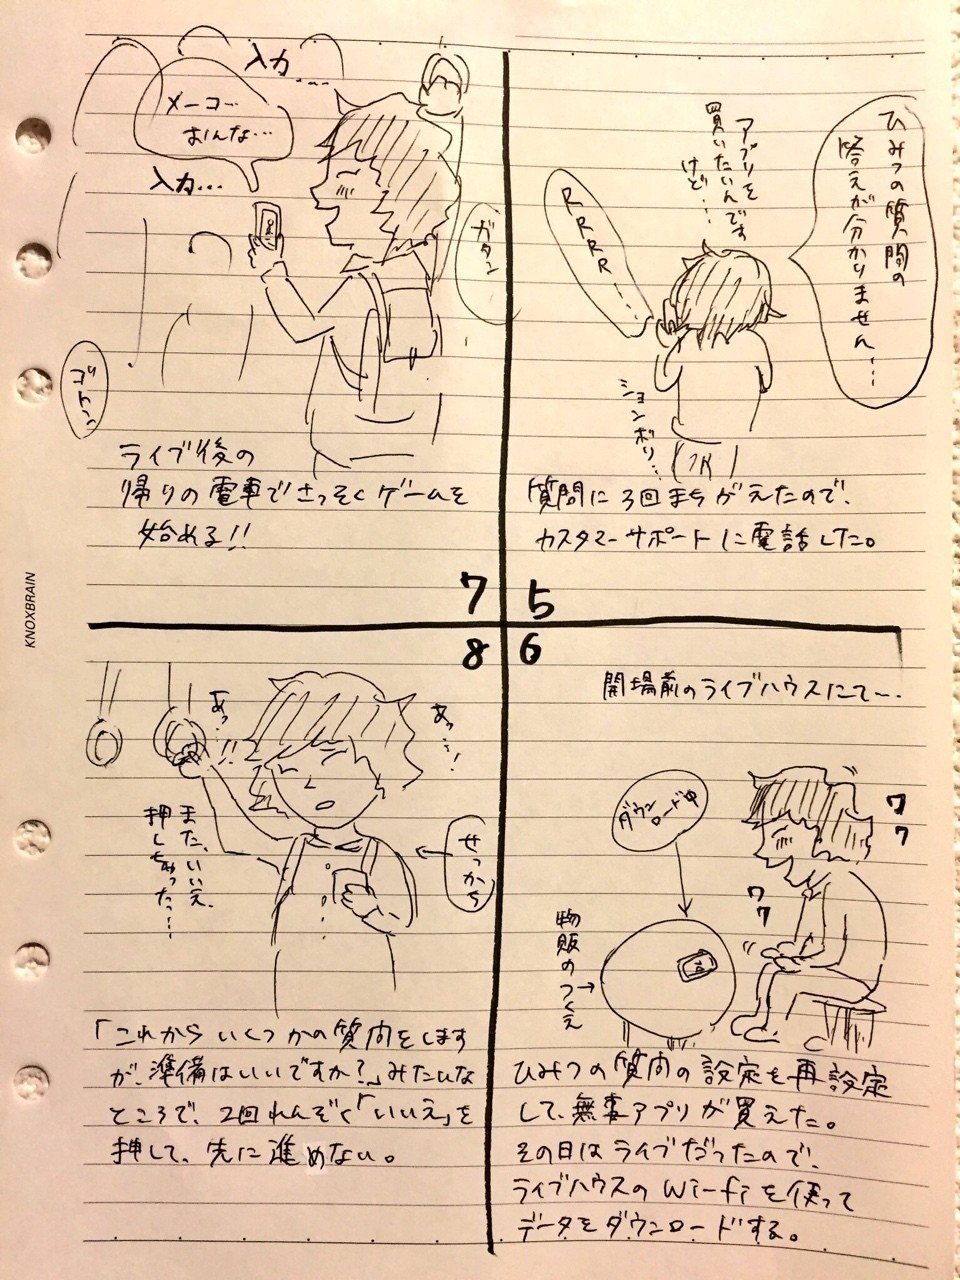 ひみつの質問の
答えが分かりません…
アプリを
買いたいんです
けど…
RRRR…
ションボリ…
質問に3回まちがえたので、
カスタマーサポートに電話した。
5
6
開場前のライブハウスにて〜.
ダウン
ロード中
ワク
ワク
物販のつくえ→
ひみつの質問の設定を再設定
して、無事アプリが買えた。
その日はライブだったので、
ライブハウスのWi-fiを使って
データをダウンロードする。
7
入力…
メーコー
おんな…
入力…
ガタン
ゴトン
ライブ後の
帰りの電車でさっそくゲームを
始める!!
8
あっ…!!
あっ…!
また、いいえ、
押しちゃった…
せっかち
「これからいくつかの質問をします
が、準備はいいですか?」みたいな
ところで、2回れんぞく「いいえ」を
押して、先に進めない。
KNOXBRAIN